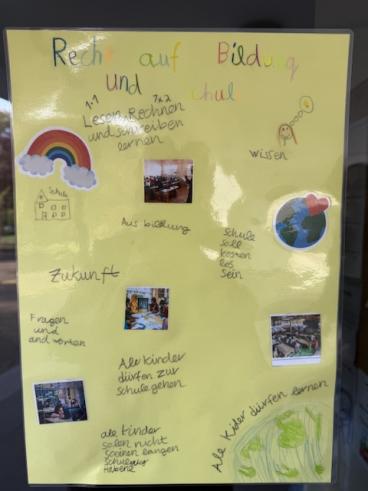 Recht auf Bildung
und Schule
1+1 7x2
Lesen, Rechnen
und schreiben
lernen
wissen
Schule
Ausbildung
Schule
soll
kosten
los
sein
Zukunft
Fragen
und
antworten
Alle kinder
dürfen zur
schule gehen
Alle Kider dürfen lernen
ale kinder
solen nicht
langen
haben